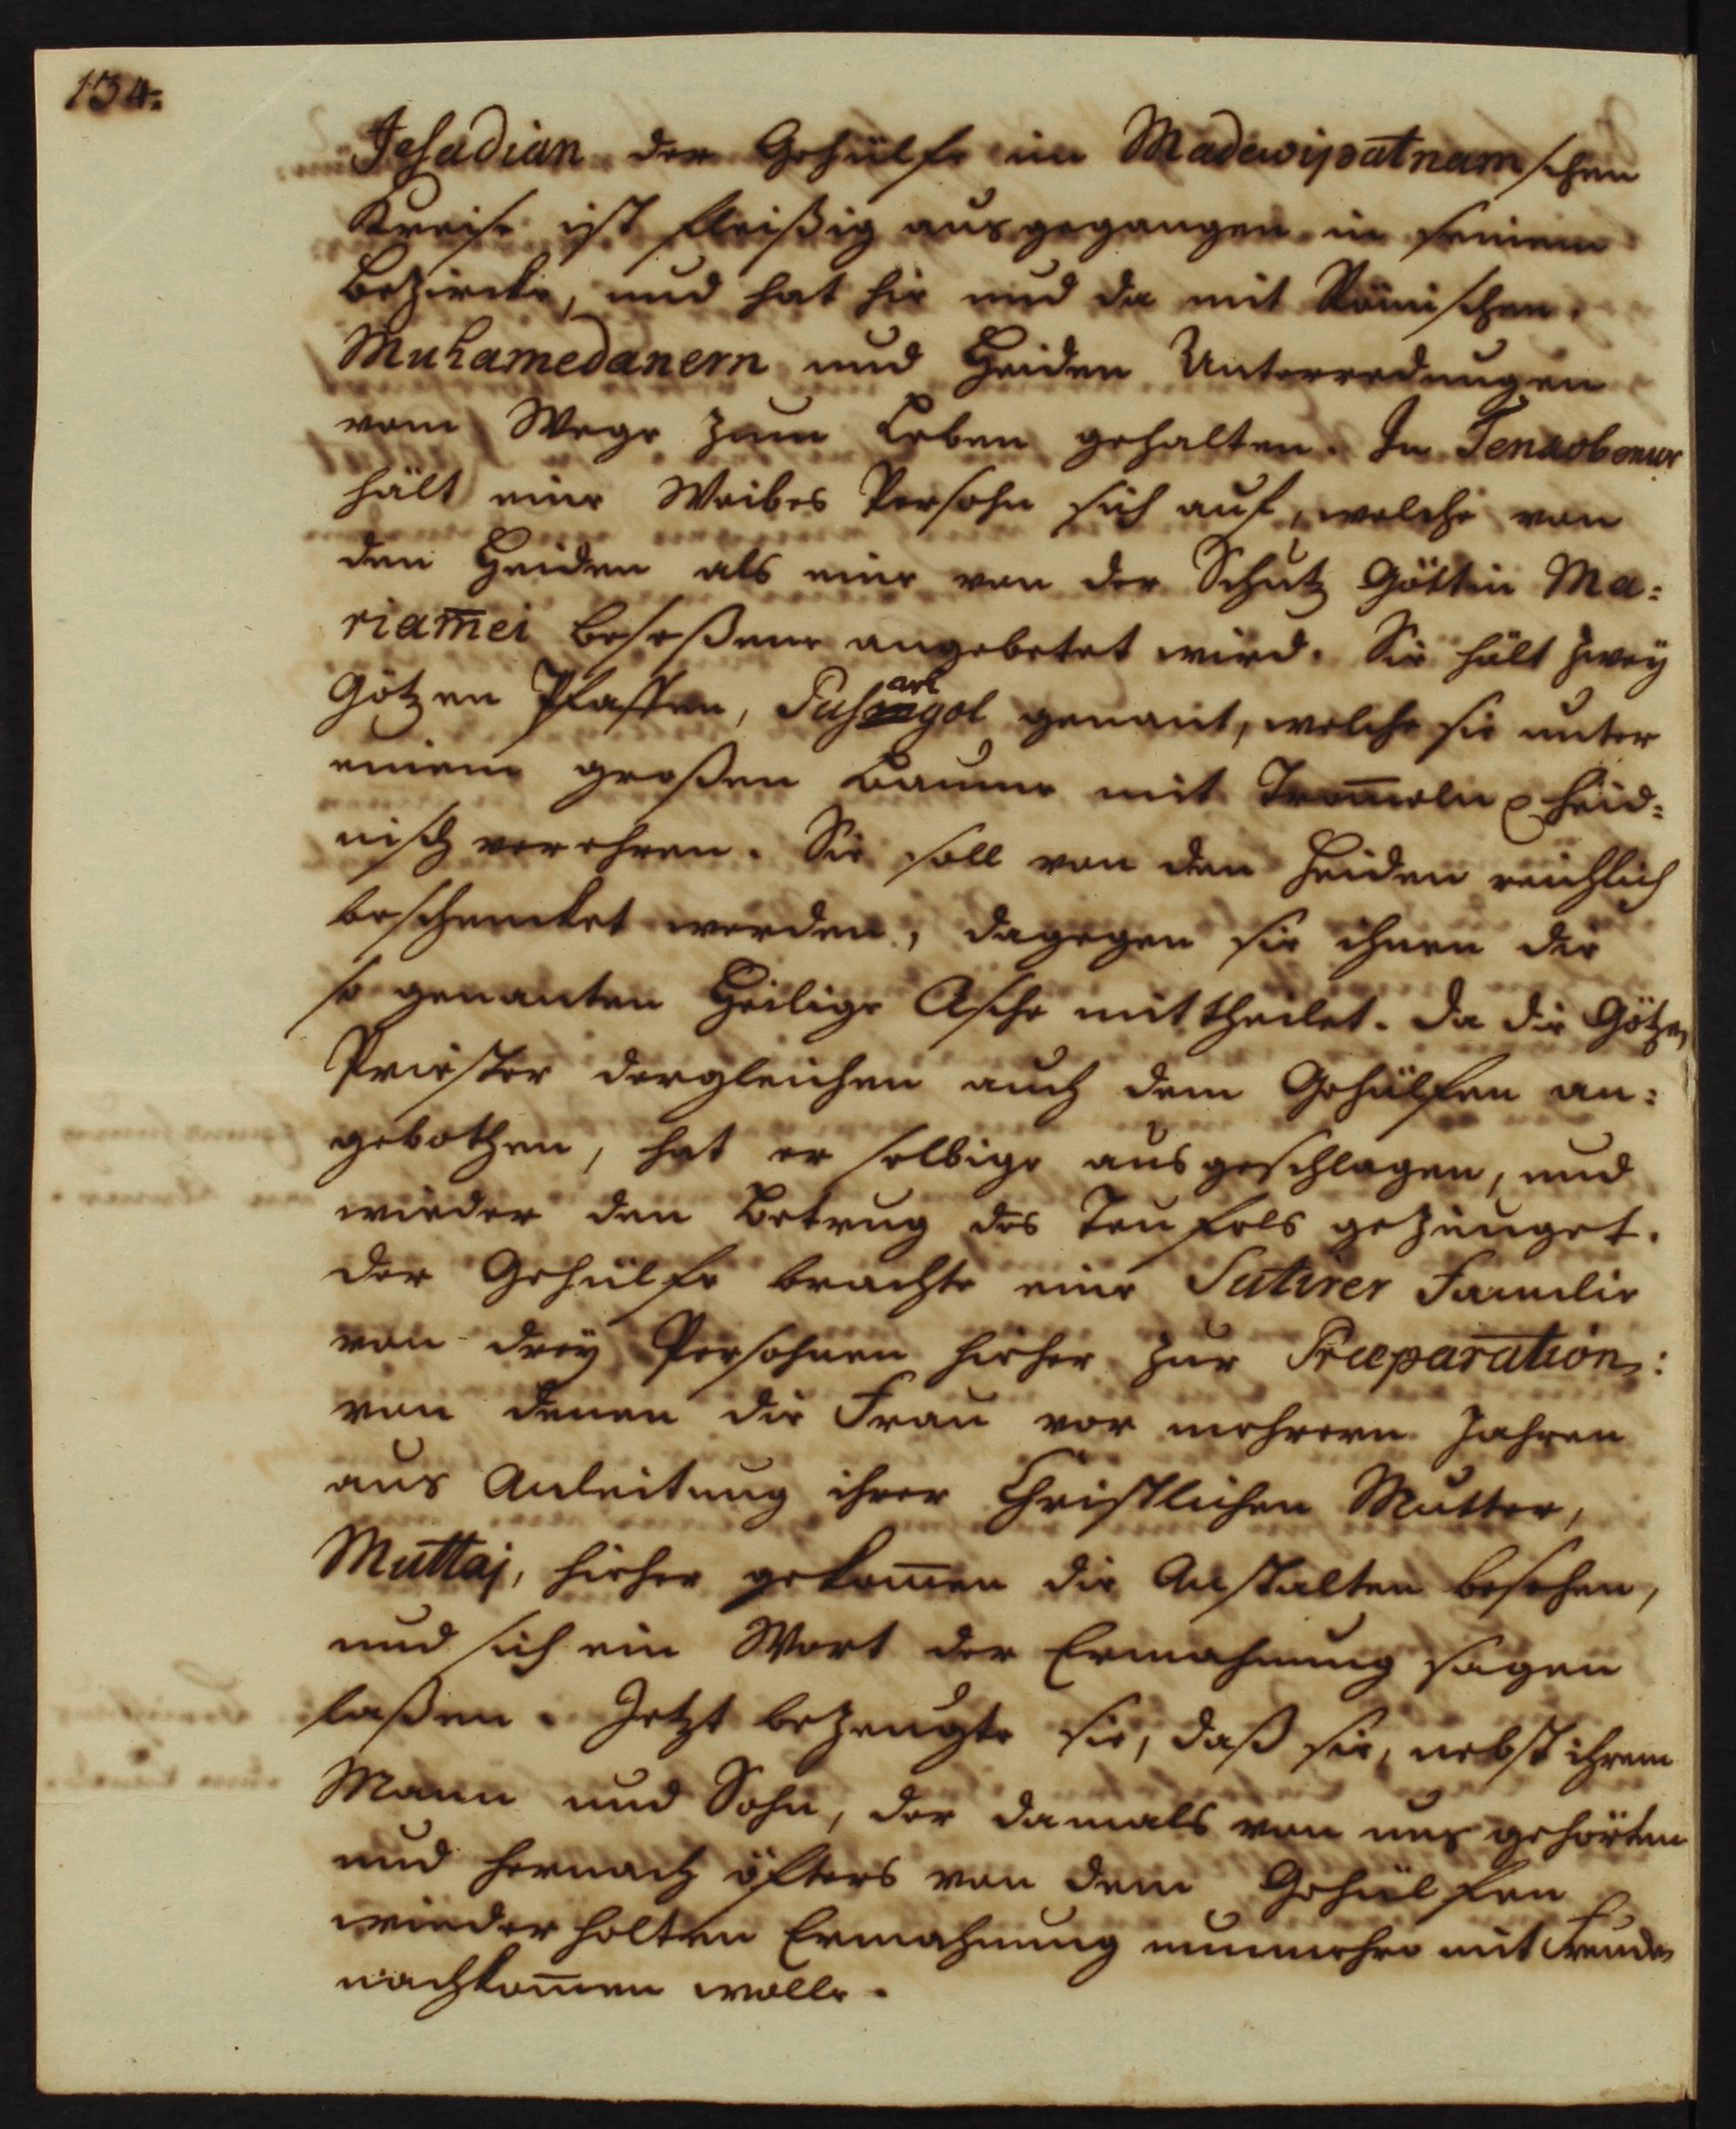 134.
Jesadian der Gehülfe im Madewipatnamschen
Kreise ist fleißig ausgegangen in seinem
Bezircke, und hat hie und da mit Römischen,
Muhamedanern und Heiden Unterredungen
vom Wege zum Leben gehalten. In
hält eine Weibes Persohn sich auf, welche von
den Heiden als eine von der Schutz Göttin Ma=
riam̅ei beseßene angebetet wird. Sie hält zwey
Götzen Pfaffen, genant, welche sie unter
einem großen Baume mit Trom̅eln heid=
nisch verehren. Sie soll von den Heiden reichlich
beschencket werden, dagegen sie ihnen die
so genanten Heilige Asche mittheilet. Da die Götzen
Priester dergleichen auch dem Gehülfen an=
gebothen, hat er selbige ausgeschlagen, und
wieder den Betrug des Teufels gezeuget.
Der Gehülfe brachte eine Sutirer Familie
von drey Persohnen hieher zur Præparation:
von denen die Frau vor mehrern Jahren
aus Anleitung ihrer Christlichen Mutter,
Muttaj, hieher gekom̅en die Anstalten besehen,
und sich ein Wort der Ermahnung sagen
laßen. Jetzt bezeugte sie, daß sie, nebst ihrem
Mann und Sohn, der damals von uns gehörten
und hernach öfters von dem Gehülfen
wiederholten Ermahnung nunmehro mit Freuden
nachkom̅en wolle.